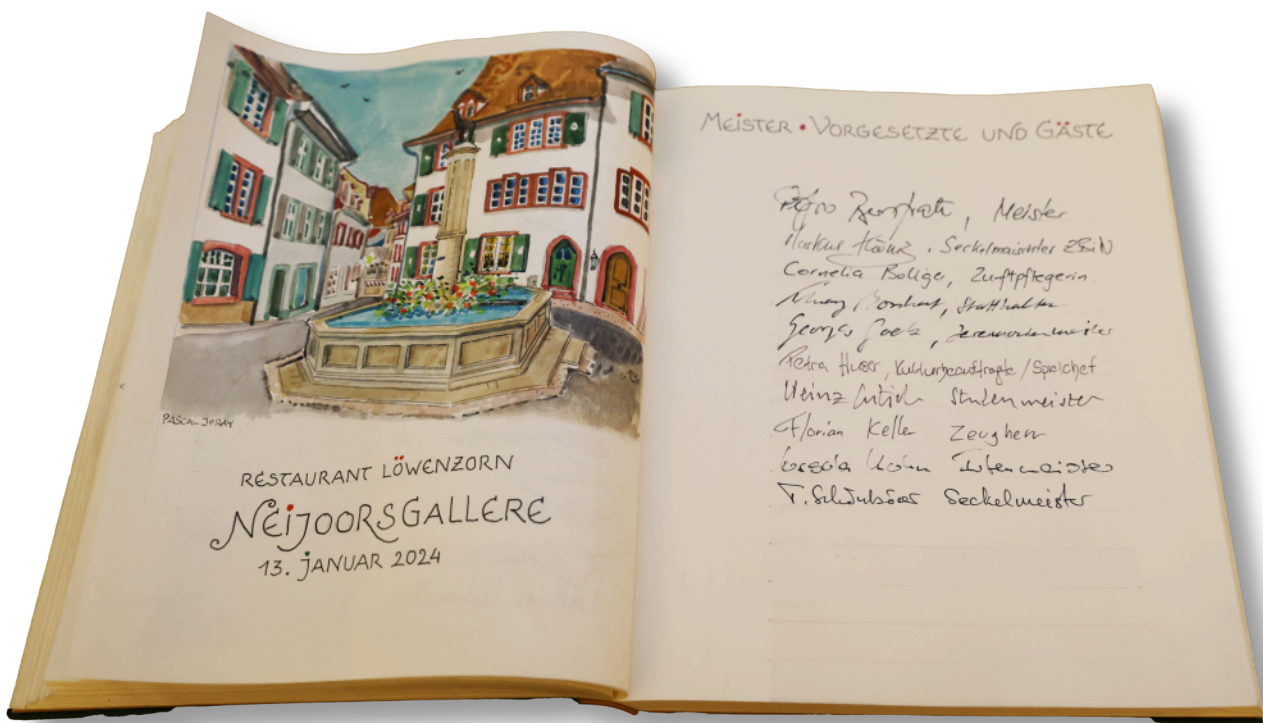 PASCAL JORAY
RESTAURANT LÖWENZORN
NEIJOORSGALLERE
13. JANUAR 2024
MEISTER • VORGESETZTE UND GÄSTE
, Meister
Markus, Seckelmaischter
Cornelia Bolliger, Zunftpflegerin
, Statthalter
Georges Goetz, Zeremonienmeister
Petra Huser, Kulturbeauftragte / Spielchef
Heinz Stubenmeister
Florian Keller Zeugherr
Irtenmeister
Seckelmeister